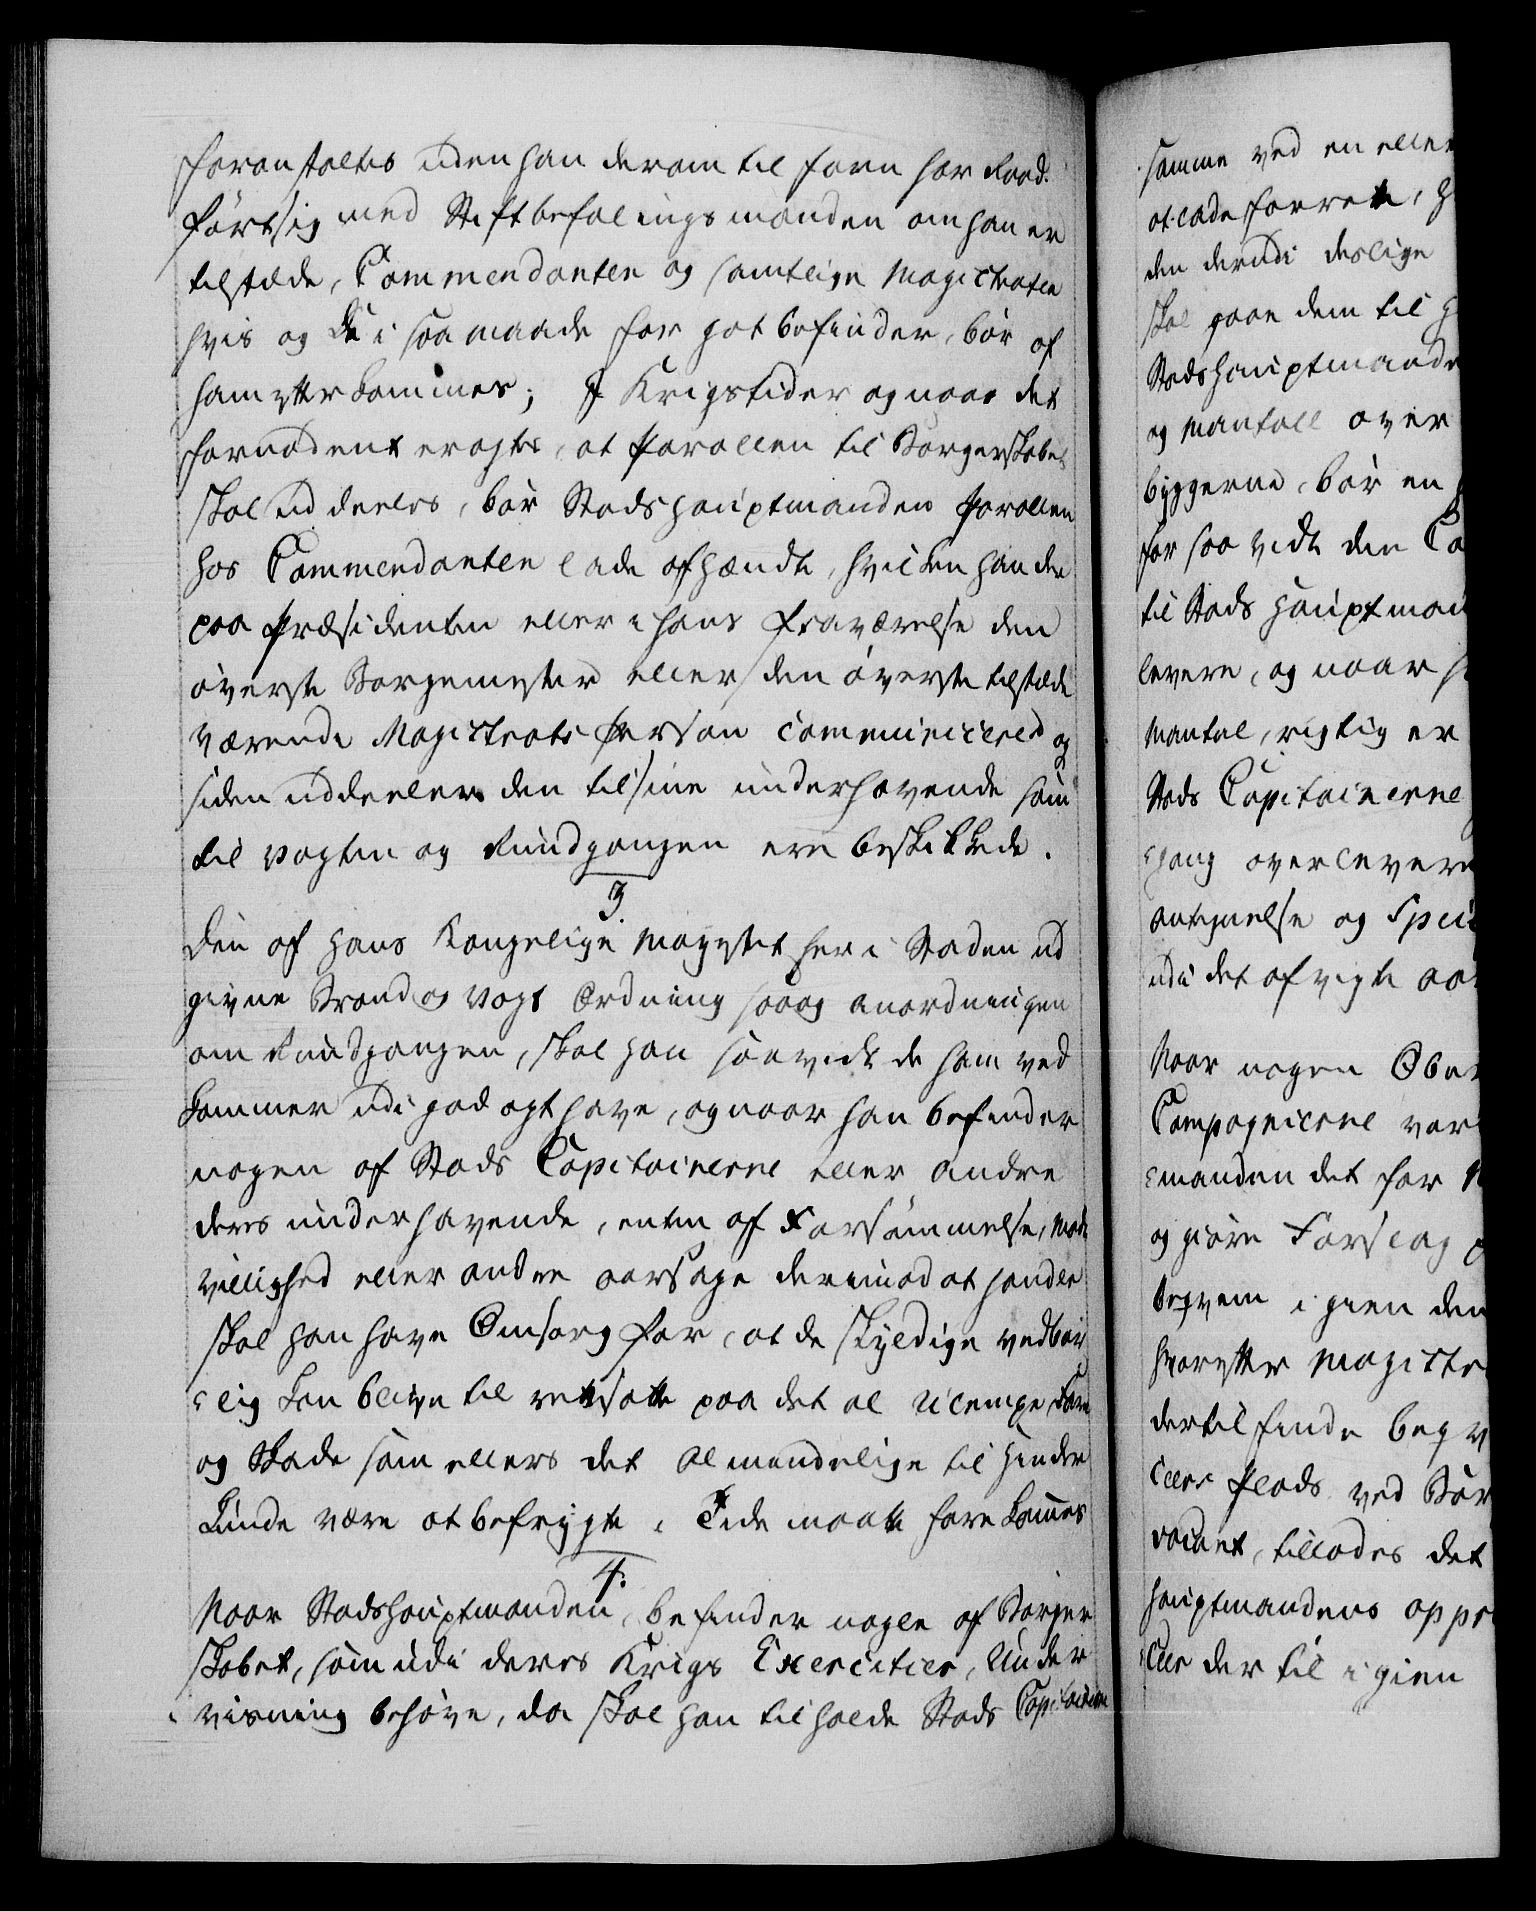 foranstaltes uden han derom til forn har Raad
ført sig med Stiftbefalingsmanden om han er
tilstæde, Commendanten og samtlige Magistraten
hvis og de i saa maade for got befinder, bør af
ham efterkommes; I Krigstider og naar det
fornødent eragtes, at Parollen til Borgerskabet
skal uddeeles, bør Stadshauptmanden Parollen
hos Commendanten lade afhændte, hvilken han der
paa Præsidenten eller i hans fraværelse den
øverste Borgemester eller den øverste tilstæde
værende Magistrats Person communicered og
siden uddeeler den til sine underhavende som
til vagten og Rundgangen ere beskikkede.
3.
Den af Hans Kongelige Mayestet her i Staden ud
givne Brand og Vagt Ordning saa og anordningen
om Rundgangen, skal han saavidt de ham ved
kommer udi god agt have, og naar han befinder
nogen af Stads Capitainerne eller andre
deres underhavende, enten af Forsømmelse, Mod
villighed eller andre aarsage derimod at handle
skal han have Omsorg for, at de skyldige vedbør
lig kan blive til rette satte paa det al Ulempe Fare
og Skade som ellers det Almindelige til Hinder
kunde være at befrygte i Tide maatte forekommes
4.
Naar Stadshauptmanden, befinder nogle af Borger
skabet, som udi deres Krigs Exercitier, Under
visning behøve, da skal han tilholde Stads Capitainerne
samme ved en eller
at lade forrette,
den derudi deslige
skal gaae dem til
Stadshauptmande
og Mantall over
byggerne, bør en
for saa vidt den
til Stads Hauptman
levere, og naar
Mantal, rigtig er
Stads Capitainerne
gang overlevere
antegnelse og
udi det afvigte
Naar nogen
Compagnierne
manden det for
og giøre Forslag
beqvem igien den
hvorefter
dertil finde
Plads ved
vacant, tillades det
hauptmandens
der til igien